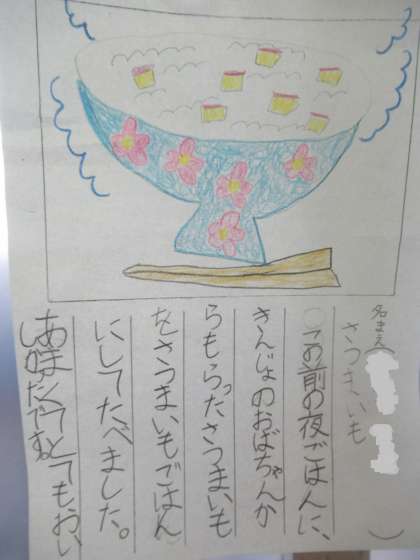 名まえ( )
さつまいも
この前の夜ごはんに、
きんじょのおばちゃんか
らもらったさつまいも
をさつまいもごはん
にしてたべました。
あまくてとてもおい
しかったです。